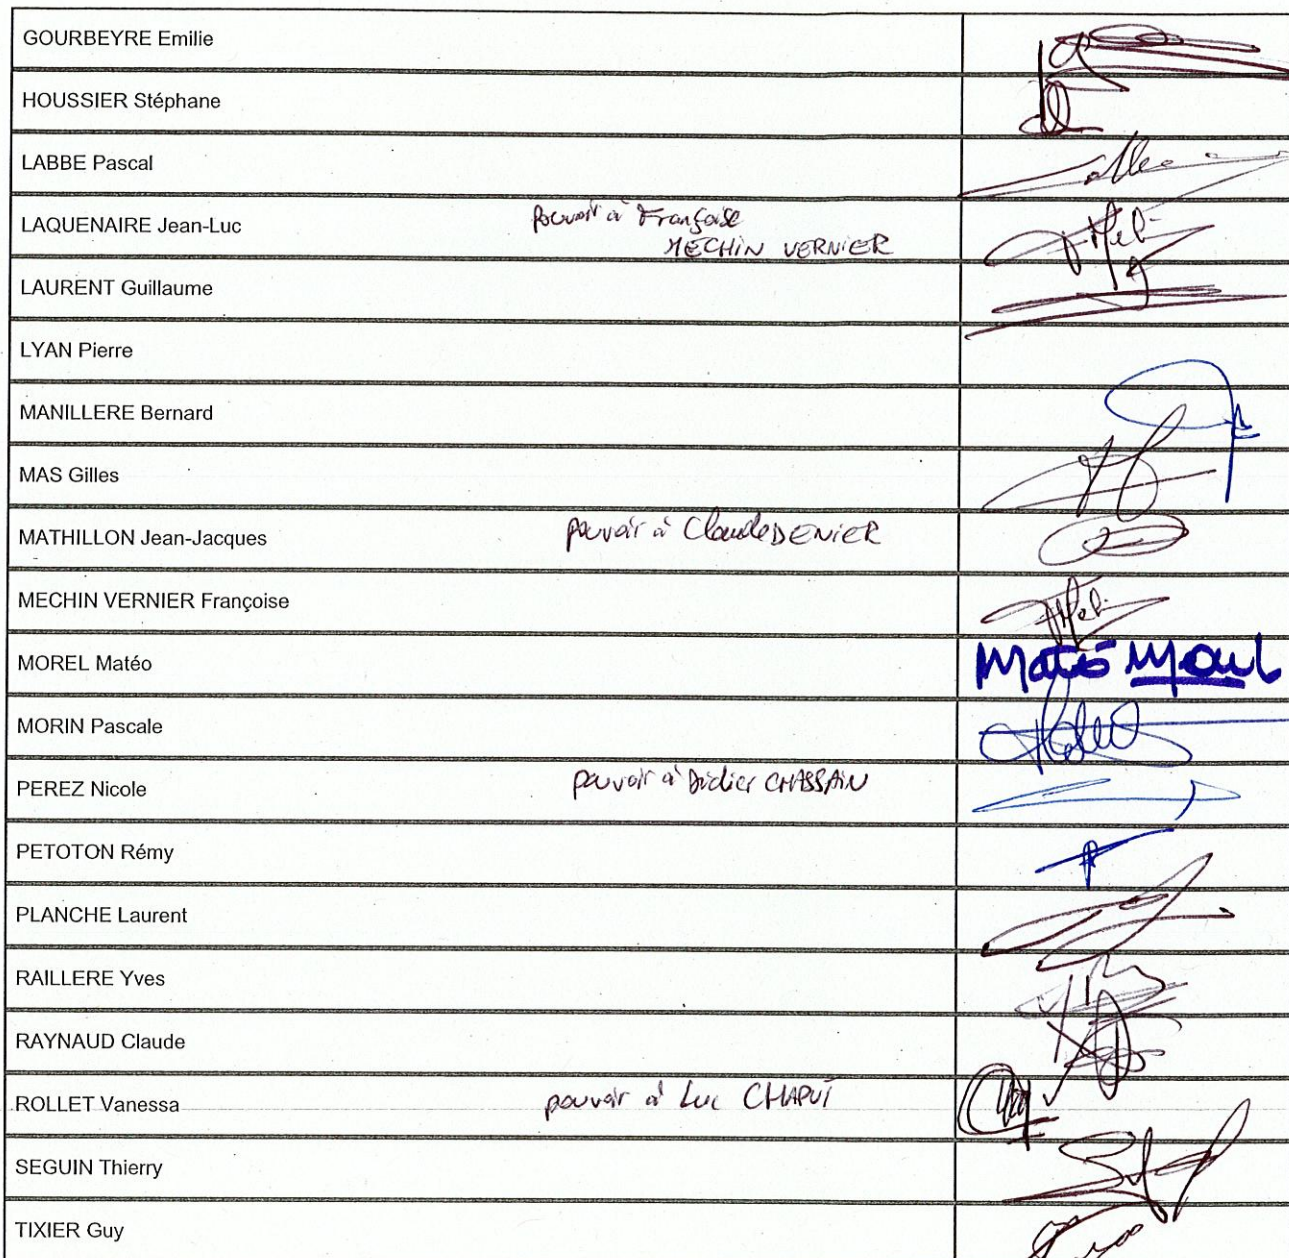 GOURBEYRE Emilie
HOUSSIER Stéphane
LABBE Pascal
LAQUENAIRE Jean-Luc pouvoir à Françoise
MECHIN VERNIER
LAURENT Guillaume
LYAN Pierre
MANILLERE Bernard
MAS Gilles
MATHILLON Jean-Jacques pouvoir à Claude DENIER
MECHIN VERNIER Françoise
MOREL Matéo Matéo Morel
MORIN Pascale
PEREZ Nicole pouvoir à Didier CHASSAIN
PETOTON Rémy
PLANCHE Laurent
RAILLERE Yves
RAYNAUD Claude
ROLLET Vanessa pouvoir à Luc CHAPUT
SEGUIN Thierry
TIXIER Guy